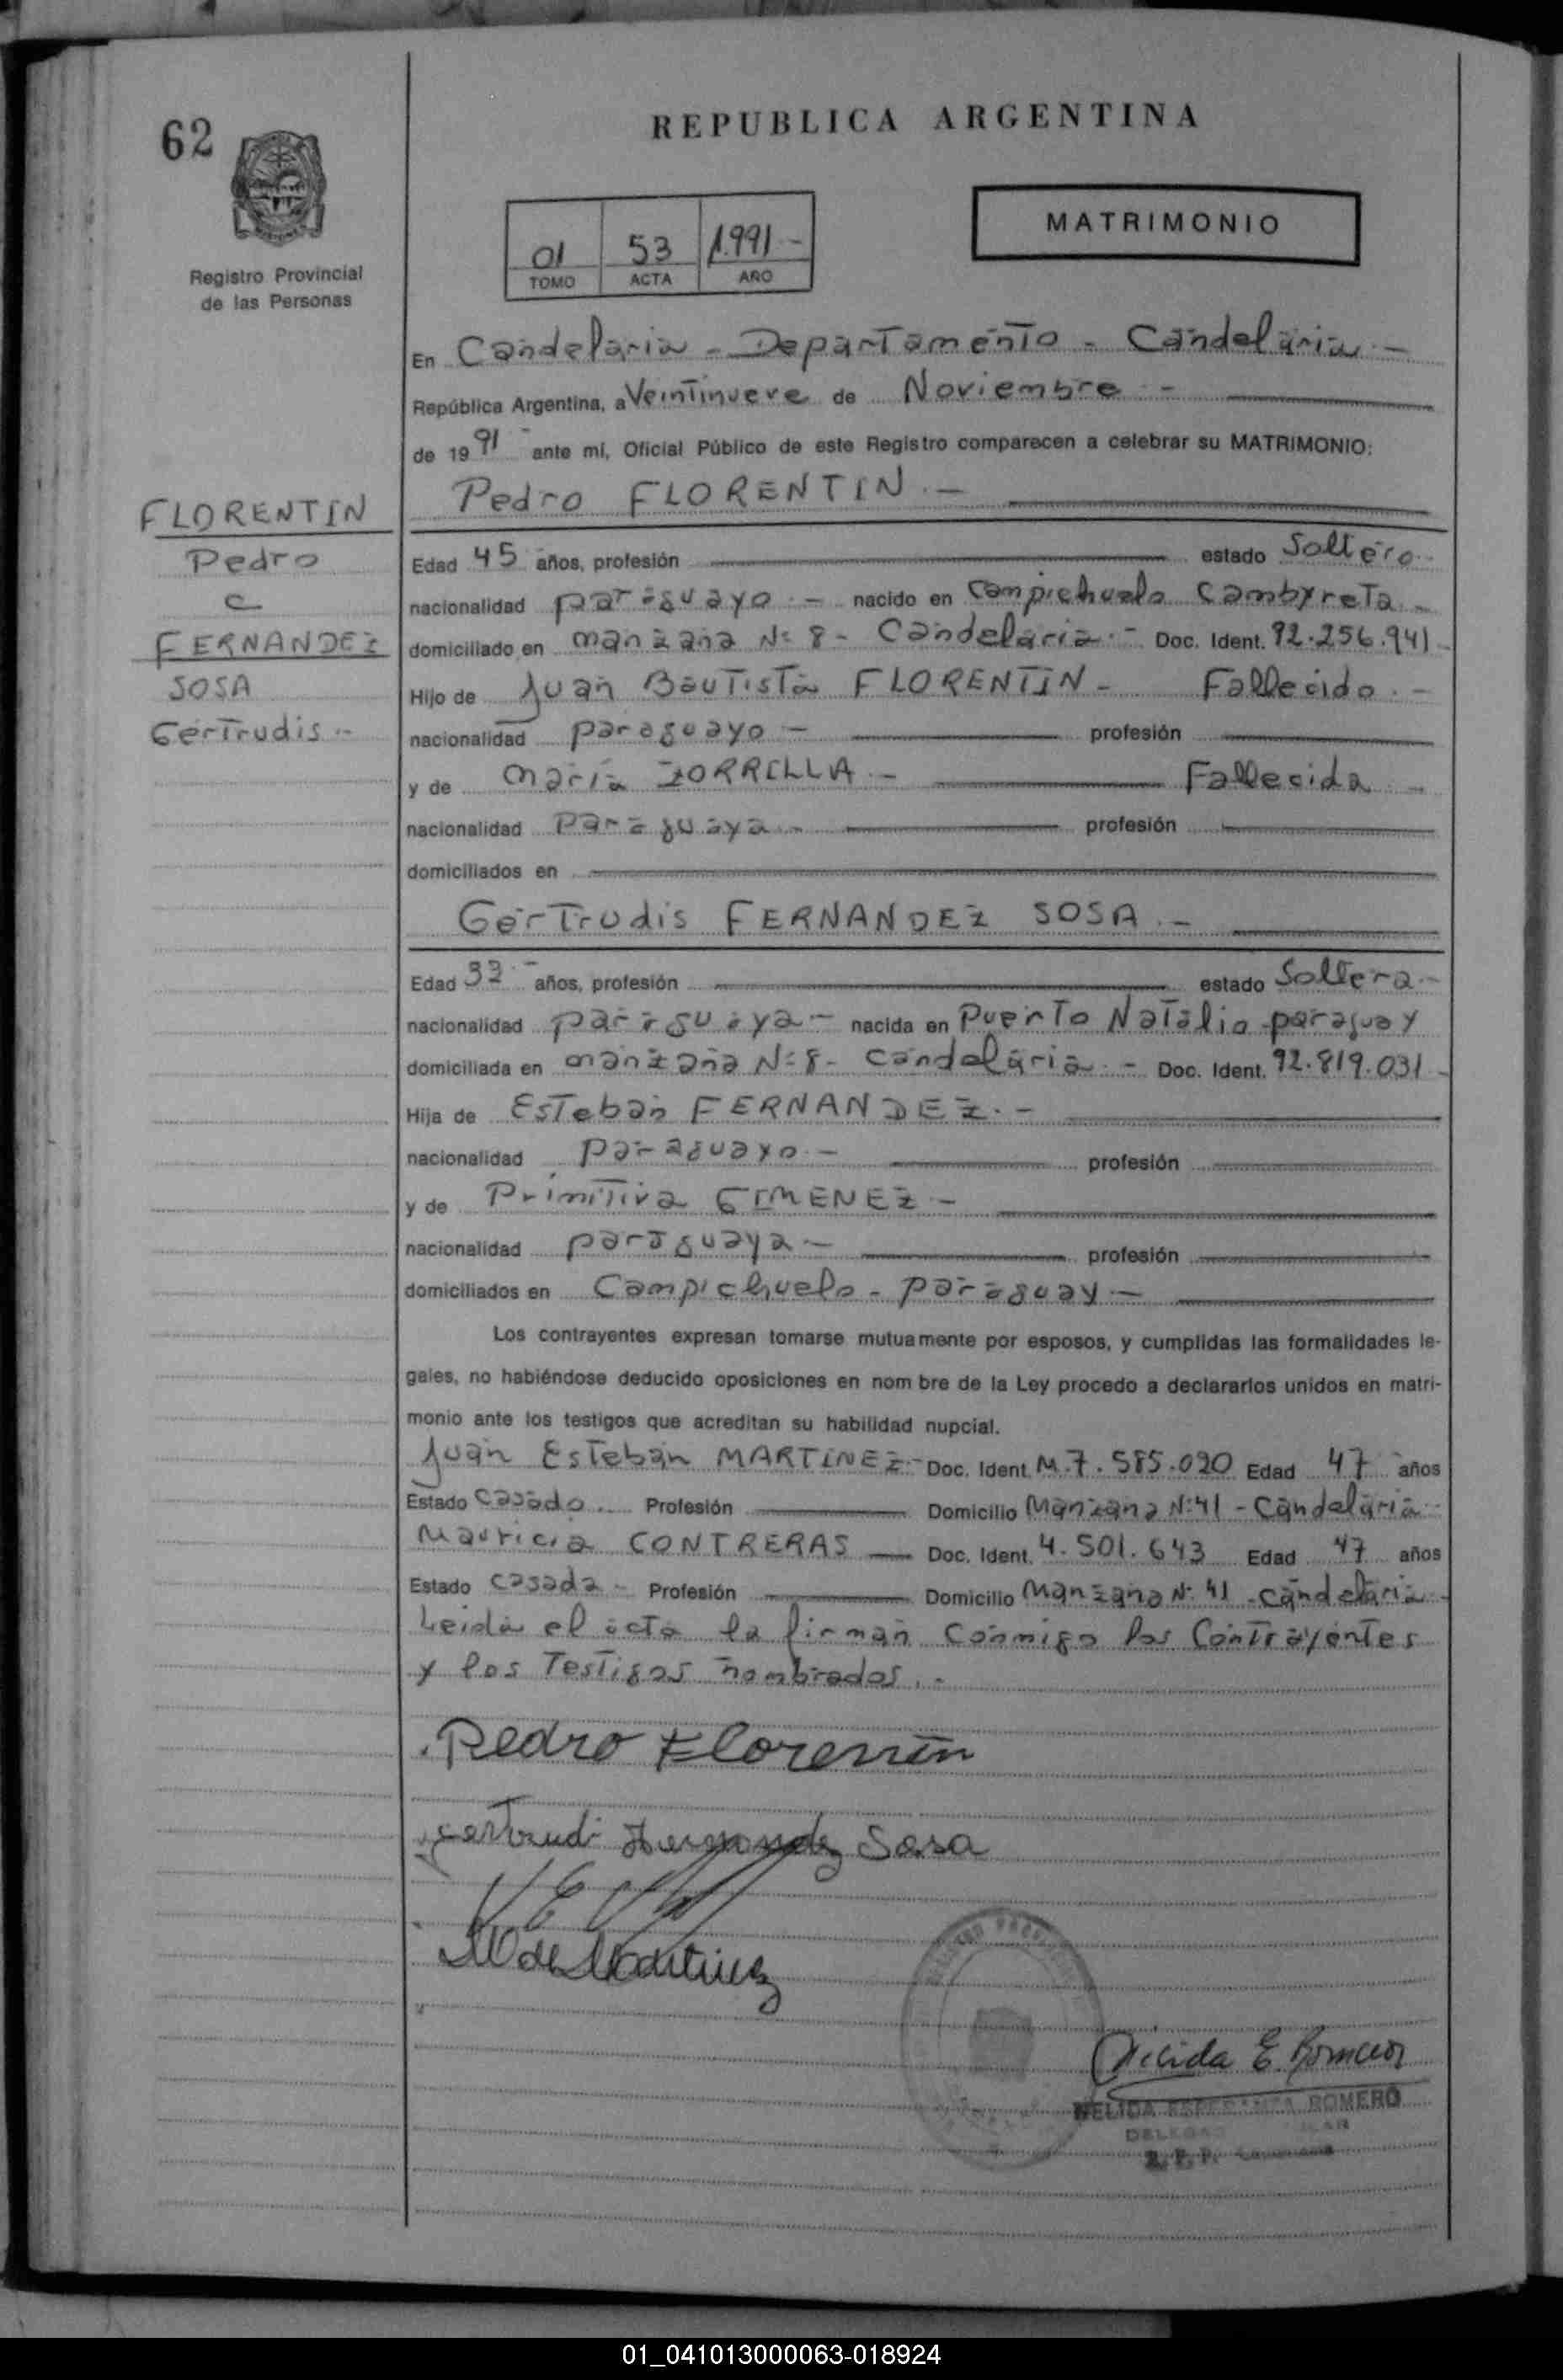 62
REPUBLICA ARGENTINA
Registro Provincial
de las Personas
01 53 1.991 -
TOMO ACTA AÑO
MATRIMONIO
En Candelaria - Departamento - Candelaria . -
República Argentina, a Veintinueve de Noviembre . -
de 19 91 - ante mí, Oficial Público de este Registro comparecen a celebrar su MATRIMONIO:
Pedro FLORENTIN . -
FLORENTIN
Pedro
c
FERNANDEZ
SOSA
Gertrudis . -
Edad 45 años, profesión estado Soltero
nacionalidad paraguayo . - nacido en Campichuelo Cambyreta . -
domiciliado en manzana Nº 8 - Candelaria . - Doc. Ident. 92.256.941 -
Hijo de Juan Bautista FLORENTIN - Fallecido . -
nacionalidad paraguayo - profesión
y de María ZORRILLA . - Fallecida . -
nacionalidad paraguaya . - profesión
domiciliados en
Gertrudis FERNANDEZ SOSA . -
Edad 33 . - años, profesión estado Soltera . -
nacionalidad paraguaya - nacida en Puerto Natalio - paraguay
domiciliada en manzana Nº 8 - candelaria . - Doc. Ident. 92.819.031 -
Hija de Esteban FERNANDEZ . -
nacionalidad paraguayo . - profesión
y de Primitiva GIMENEZ -
nacionalidad paraguaya - profesión
domiciliados en Campichuelo - paraguay -
Los contrayentes expresan tomarse mutuamente por esposos, y cumplidas las formalidades le-
gales, no habiéndose deducido oposiciones en nom bre de la Ley procedo a declararlos unidos en matri-
monio ante los testigos que acreditan su habilidad nupcial.
Juan Esteban MARTINEZ - Doc. Ident. M.7.585.020 Edad 47 años
Estado Casado Profesión Domicilio Manzana Nº 41 - Candelaria
Mauricia CONTRERAS - Doc. Ident. 4.501.643 Edad 47 años
Estado Casada - Profesión Domicilio Manzana Nº 41 - candelaria -
Leida el acta la firman conmigo los Contrayentes
y los Testigos nombrados . -
Pedro Florentin
Gertrudi Fernandez Sosa
M de Martinez
Nelida E. Romero
NELIDA ESPERANZA ROMERO
01_041013000063-018924